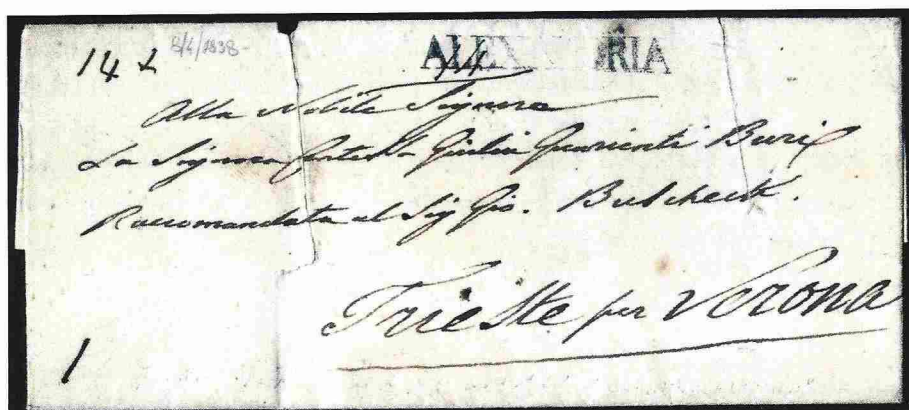 14 x 8/4/1838-
ALEX RIA
Alla Nobile Signora
La Signora Contessa Giulia Guarienti Buri
Raccomandata al Sig Gio. Buscheck.
Trieste per Verona
1